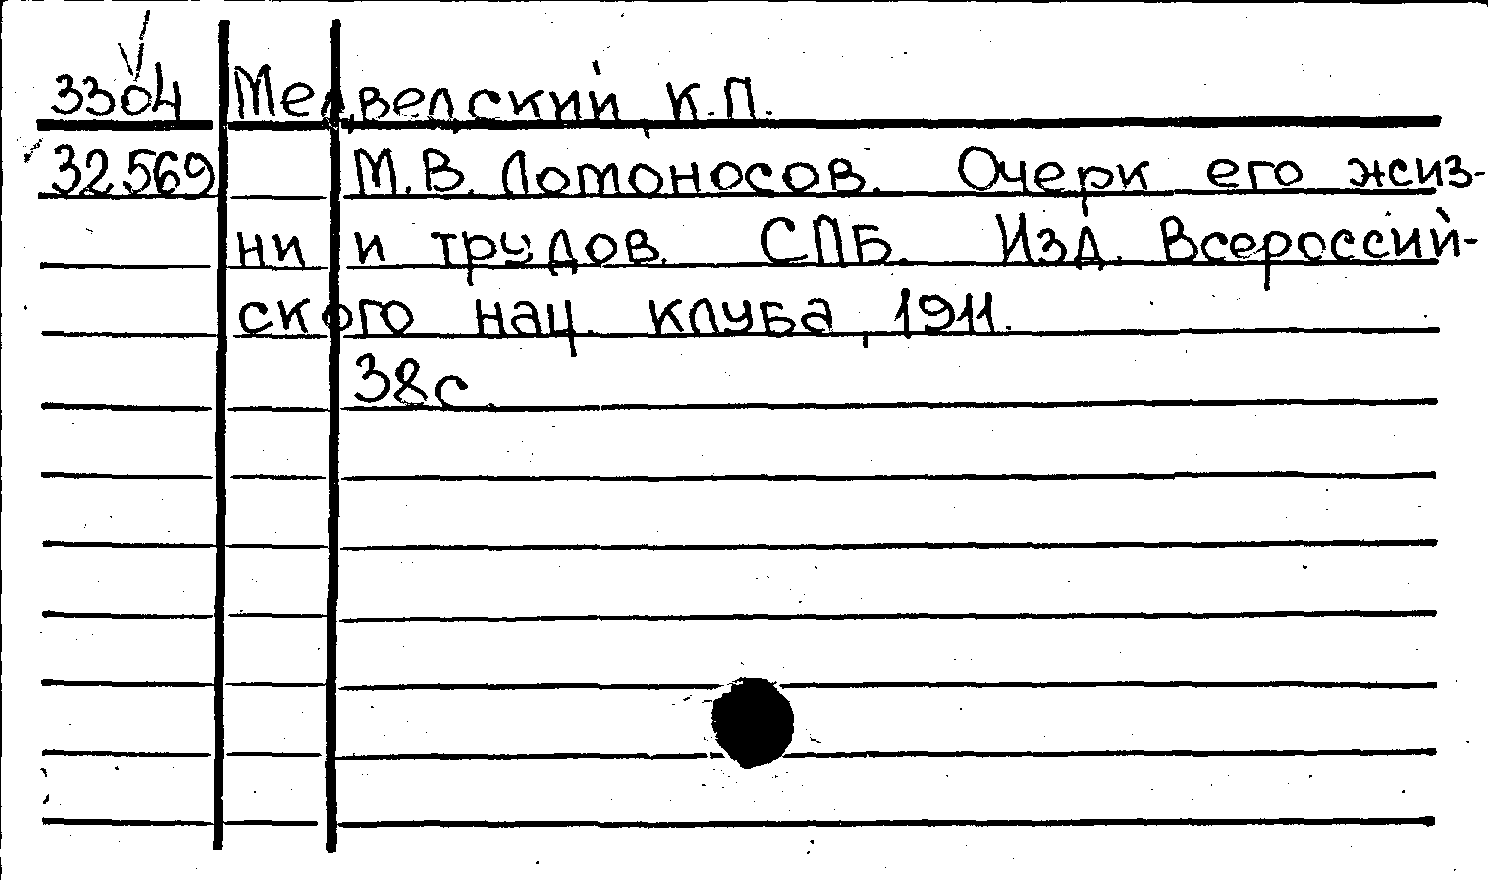 3304 Медведский, К.П.
32569 М.В. Ломоносов. Очерк его жиз-
ни и трудов. СПБ. Изд. Всероссий-
ского нац. клуба, 1911.
38с.